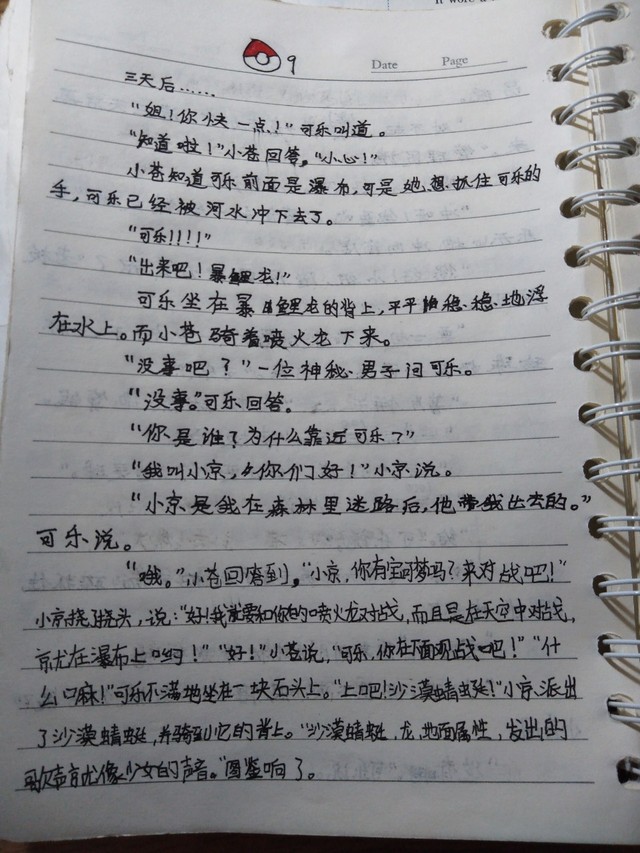 9
Date Page
三天后……
“姐！你快一点！”可乐叫道。
“知道啦！”小苍回答。“小心！”
小苍知道可乐前面是瀑布，可是她想抓住可乐的
手，可乐已经被河水冲下去了。
“可乐！！！！”
“出来吧！暴鲤龙！”
可乐坐在暴鲤龙的背上，平平稳稳地浮
在水上。而小苍骑着喷火龙下来。
“没事吧？”一位神秘男子问可乐。
“没事。”可乐回答。
“你是谁？为什么靠近可乐？”
“我叫小京，你们好！”小京说。
“小京是我在森林里迷路后，他带我出去的。”
可乐说。
“哦。”小苍回答到，“小京，你有宝可梦吗？来对战吧！”
小京挠了挠头，说：“好！我就要和你的喷火龙对战，而且是在天空中对战，
就在瀑布上哟！”“好！”小苍说，“可乐，你在下面观战吧！”“什
么口麻！”可乐不满地坐在一块石头上。“上吧！沙漠蜻蜓！”小京派出
了沙漠蜻蜓，并骑到它的背上。“沙漠蜻蜓，龙，地面属性，发出的
歌声就像少女的声音。”图鉴响了。